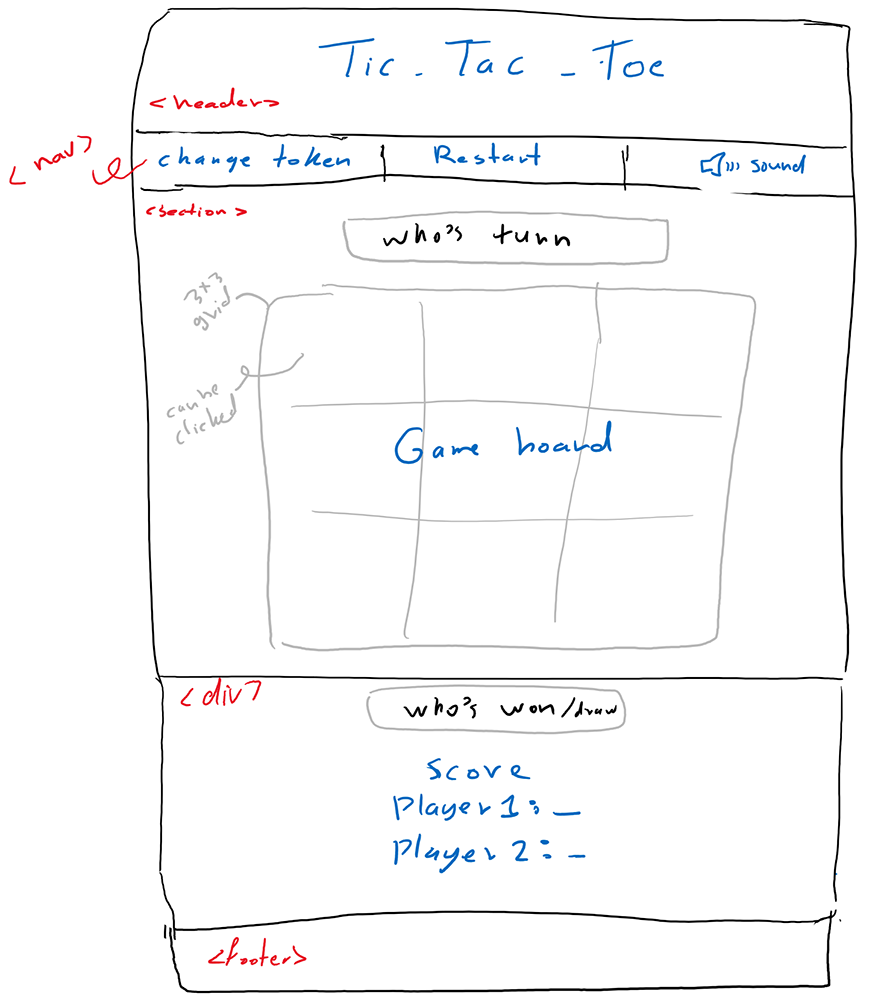 Tic - Tac - Toe
<header>
<nav>
change token
Restart
sound
<section>
who's turn
3x3
grid
can be
clicked
Game board
<div>
who's won/draw
Score
Player 1: _
Player 2: _
<footer>